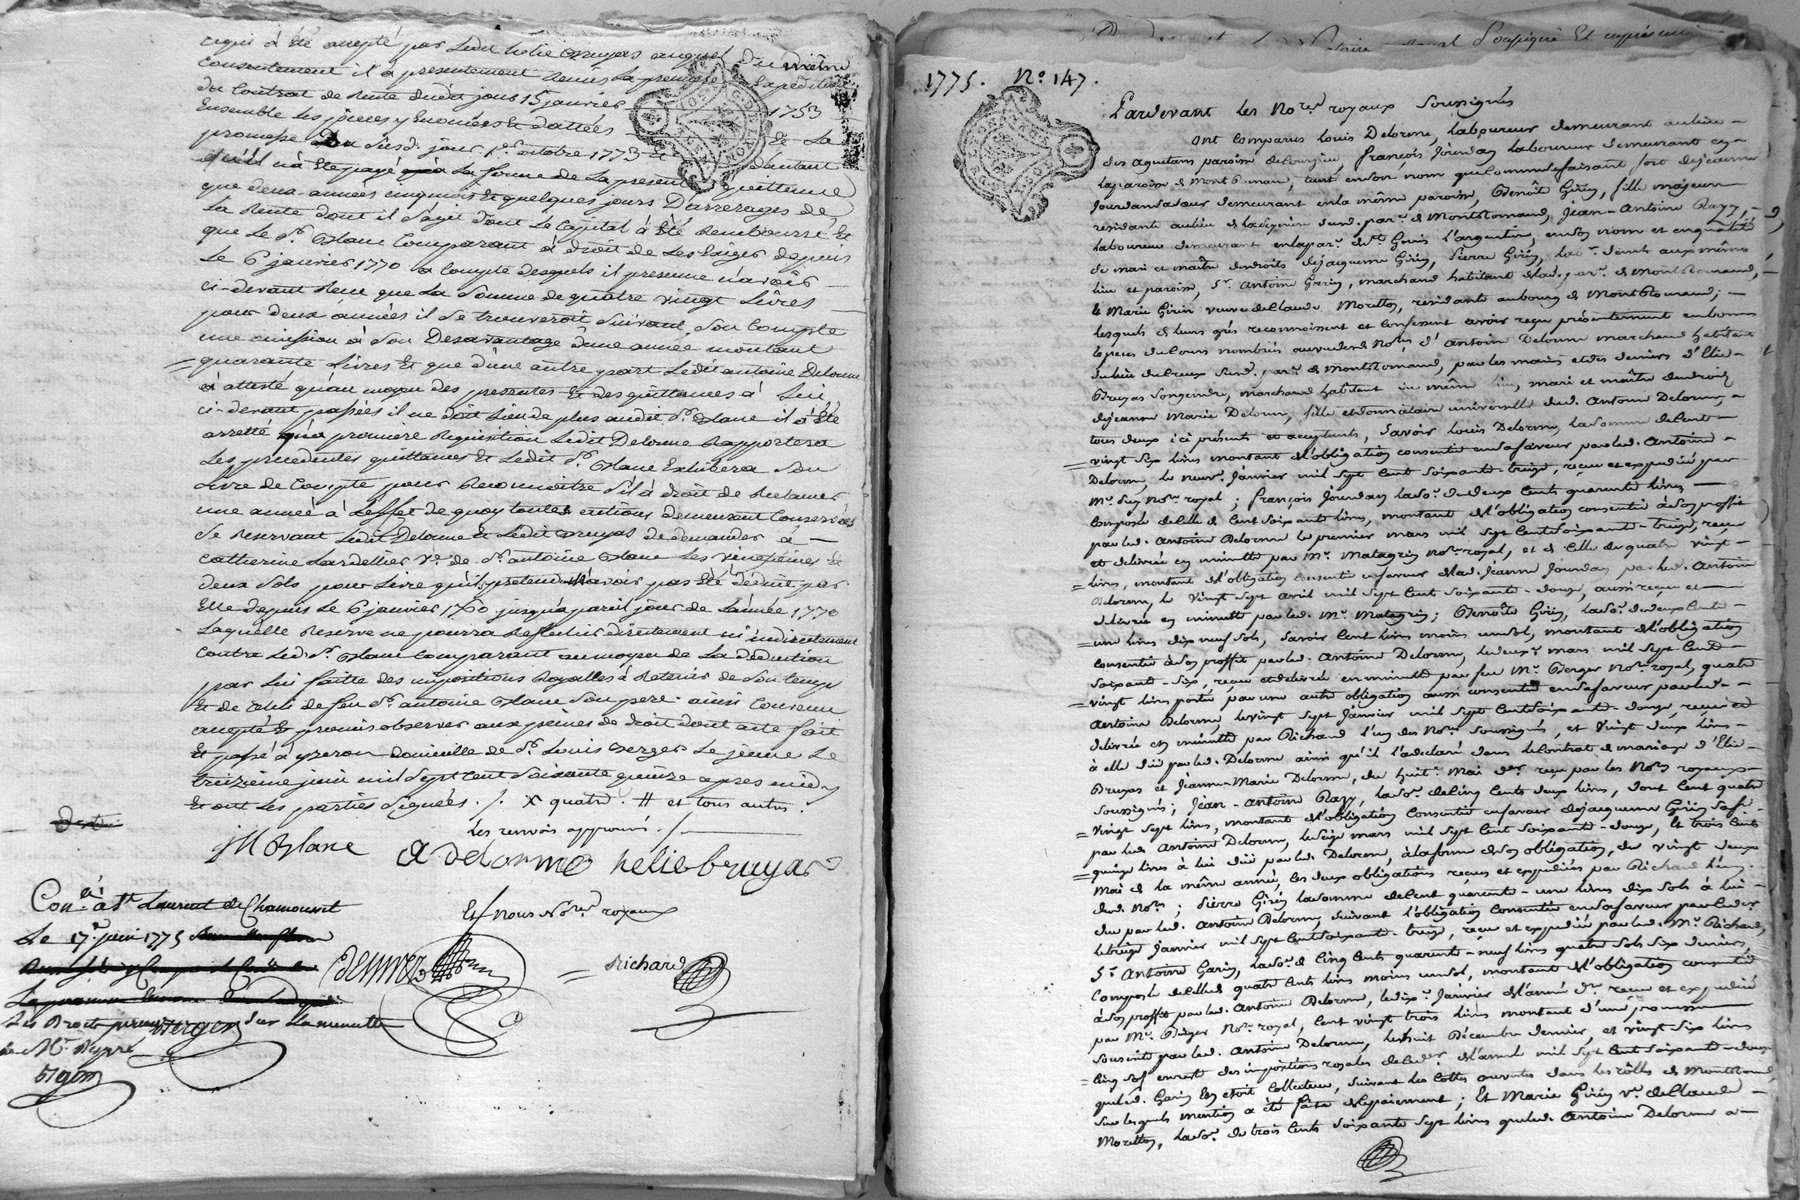 cequi à été accepté par Ledit helie Bruyas auquel Du même
Consentement il a presentement Remis La premiere Expédition
du Contrat de Rente dudit jour 15 janvier 1753
Ensemble les pieces y Enoncées Et dattées De La
promesse Du Susd. jour 1er octobre 1773
qu'il n'a Eté payé La forme de La presente quittance
que deux années cinq mois Et quelques jours D'arrerages de
La Rente dont il s'agit dont Le Capital à Eté Remboursé Et
que Le Sr. Blanc Comparant à droit de Les Exiger depuis
Le 6 janvier 1770 a Compte desquels il présume n'avoir
ci-devant Reçu que La Somme de quatre vingt Livres
pour deux années il Se trouveroit Suivant Son Compte
une omission à Son Desavantage d'une année montant
quarante Livres Et que d'une autre part Ledit antoine Delorme
à attesté qu'au moyen des presentes Et des quittances à Lui
ci-devant passées il ne doit Rien de plus audit Sr. Blanc il à Eté
arretté qu'a premiere Requisition Ledit Delorme Rapportera
Les precedentes quittances Et Ledit Sr. Blanc Exhibera Son
Livre de Compte pour Reconnoitre S'il à droit de Reclamer
une année à L'effet de quoy toutes actions demeurent Conservées
Se Reservant Ledit Delorme Et Ledit Bruyas de demander à
Catherine Lardellier Ve. de Sr. antoine Blanc Les vingtiemes Et
deux Sols pour Livre qu'ils pretendent n'avoir pas Eté déduit par
Elle depuis Le 6 janvier 1760 jusqu'a pareil jour de L'année 1770
Laquelle Reserve ne pourra Reflechir directement ni indirectement
Contre Led. Sr. Blanc Comparant au moyen de La déduction
par Lui faitte des impositions Royalles à Retenir de Son temps
Et de celui de feu Sr. antoine Blanc Son pere ainsi Convenu
accepté Et promis observer aux peines de droit dont acte fait
Et passé à yzeron domicille de Sr. Louis Berger Le jeune Le
treizieme juin mil Sept Cent Soixante quinze apres midy
Et ont Les parties Signées ./. x quatre . # et tous autres
Les renvois approuvés ./.
JM Blanc A Delorme heliebruyas
Con.lé à St. Laurent de Chamousset
Et Nous Nores. royaux
Le 17e. juin 1775
Richard
Les Droits perçus Sur La minutte
de Mr.
1775. No. 147.
Pardevant les Nores. royaux Soussignés
ont comparus Louis Delorme, laboureur demeurant au lieu
des Aguetans paroisse de françois Jourdan laboureur demeurant en
la paroisse de Montromand, tant en son nom que comme se faisant fort de jeanne
Jourdan sa sœur demeurant en la même paroisse, Benoîte Girin, fille majeure
résidante au lieu de susd. par. de Montromand, Jean-Antoine Razy,
laboureur demeurant en la par. de St. Genis l'argentiere, en son nom et en qualité
de mari et maître des droits de jacqueme Girin, Pierre Girin, lab. dem.t aux même
lieu et paroisse, Sr. Antoine Garin, marchand habitant de lad. par. de Montromand,
& Marie Girin veuve de Claude Morellon, résidante au bourg de Montromand;
lesquels de leurs grés reconnoissent et confessent avoir reçu présentement en bonnes
espèces du Cours nombrées au vu desd. Nores. d'Antoine Delorme marchand habitant
susd. par. de Montromand, par les mains et des deniers d'Elie
Bruyas Son gendre, marchand habitant au même lieu, mari et maître des droits
de jeanne Marie Delorme, fille et donnataire universelle dud. Antoine Delorme,
tous deux ici présents et acceptants, Savoir Louis Delorme, la somme de Cent
vingt Six livres montant de l'obligation consentie en sa faveur par led. Antoine
Delorme, le neuf Janvier mil Sept Cent Soixante-treize, reçue et expediée par
Nore. royal; françois Jourdan la So. de deux Cents quarante livres
Composée de celle de Cent Soixante livres, montant de l'obligation consentie à son proffit
par led. Antoine Delorme le premier mars mil Sept Cent Soixante-treize, reçue
et delivrée en minutte par Me. Matagrin Nore. royal, et de celle de quatre vingt
livres, montant de l'obligation Consentie en faveur de lad. Jeanne Jourdan par led. Antoine
Delorme, le Vingt Sept Avril mil Sept Cent Soixante-douze, aussi reçue et
delivrée en minutte par led. Me. Matagrin; Benoîte Girin, la So. de deux Cents
un livres dix neuf Sols, Savoir Cent livres moins un Sol, montant de l'obligation
consentie à son proffit par led. Antoine Delorme, le deux mars mil Sept Cent
Soixante-six, reçue et delivrée en minutte par feu Me. Berger Nore. royal, quatre
vingt livres portées par une autre obligation aussi consentie en sa faveur par led.
Antoine Delorme, le Vingt Sept Janvier mil Sept Cent Soixante-douze, reçue et
delivrée en minutte par Richard l'un des Nores. Soussignés, et Vingt deux livres
à elle dües par led. Delorme ainsi qu'il l'a declaré dans le Contrat de mariage d'Elie
Bruyas et Jeanne-Marie Delorme, du huit Mai der. reçu par les Nores. royaux
Soussignés; Jean-Antoine Razy, la So. de Cinq Cents deux livres, dont Cent quatre
vingt Sept livres, montant de l'obligation Consentie en faveur de jacqueme Girin Sa fe.
par led. Antoine Delorme, le Seize mars mil Sept Cent Soixante-douze, & trois Cents
quinze livres à lui dües par led. Delorme, à la forme de son obligation, du vingt deux
Mai de la même année, les deux obligations reçues et expediées par Richard l'un
desd. Nores.; Pierre Girin la Somme de Cent quarante-une livres dix Sols à lui
due par led. Antoine Delorme, Suivant l'obligation Consentie en Sa faveur par led.
le treize Janvier mil Sept Cent Soixante-treize, reçue et expediée par led. Me. Richard,
Sr. Antoine Garin, la So. de Cinq Cents quarante-neuf livres quatre Sols Six deniers,
Composée de celle de quatre Cents livres moins un Sol, montant de l'obligation Consentie
à Son proffit par led. Antoine Delorme, le dix Janvier de l'année der. reçue et expediée
par Me. Berger Nore. royal, Cent vingt trois livres montant d'une promesse
Souscrite par led. Antoine Delorme, le huit Décembre dernier, et vingt Six livres
Cinq Sols en reste des impositions royales de l'année mil Sept Cent Soixante-douze
que led. Garin En etoit Collecteur, Suivant les Cottes ouvertes dans les rôlles de Montromand,
Sur lesquels mention a été faite de payement; Et Marie Girin Ve. de Claude
Morellon, la So. de trois Cents Soixante Sept livres que led. Antoine Delorme a